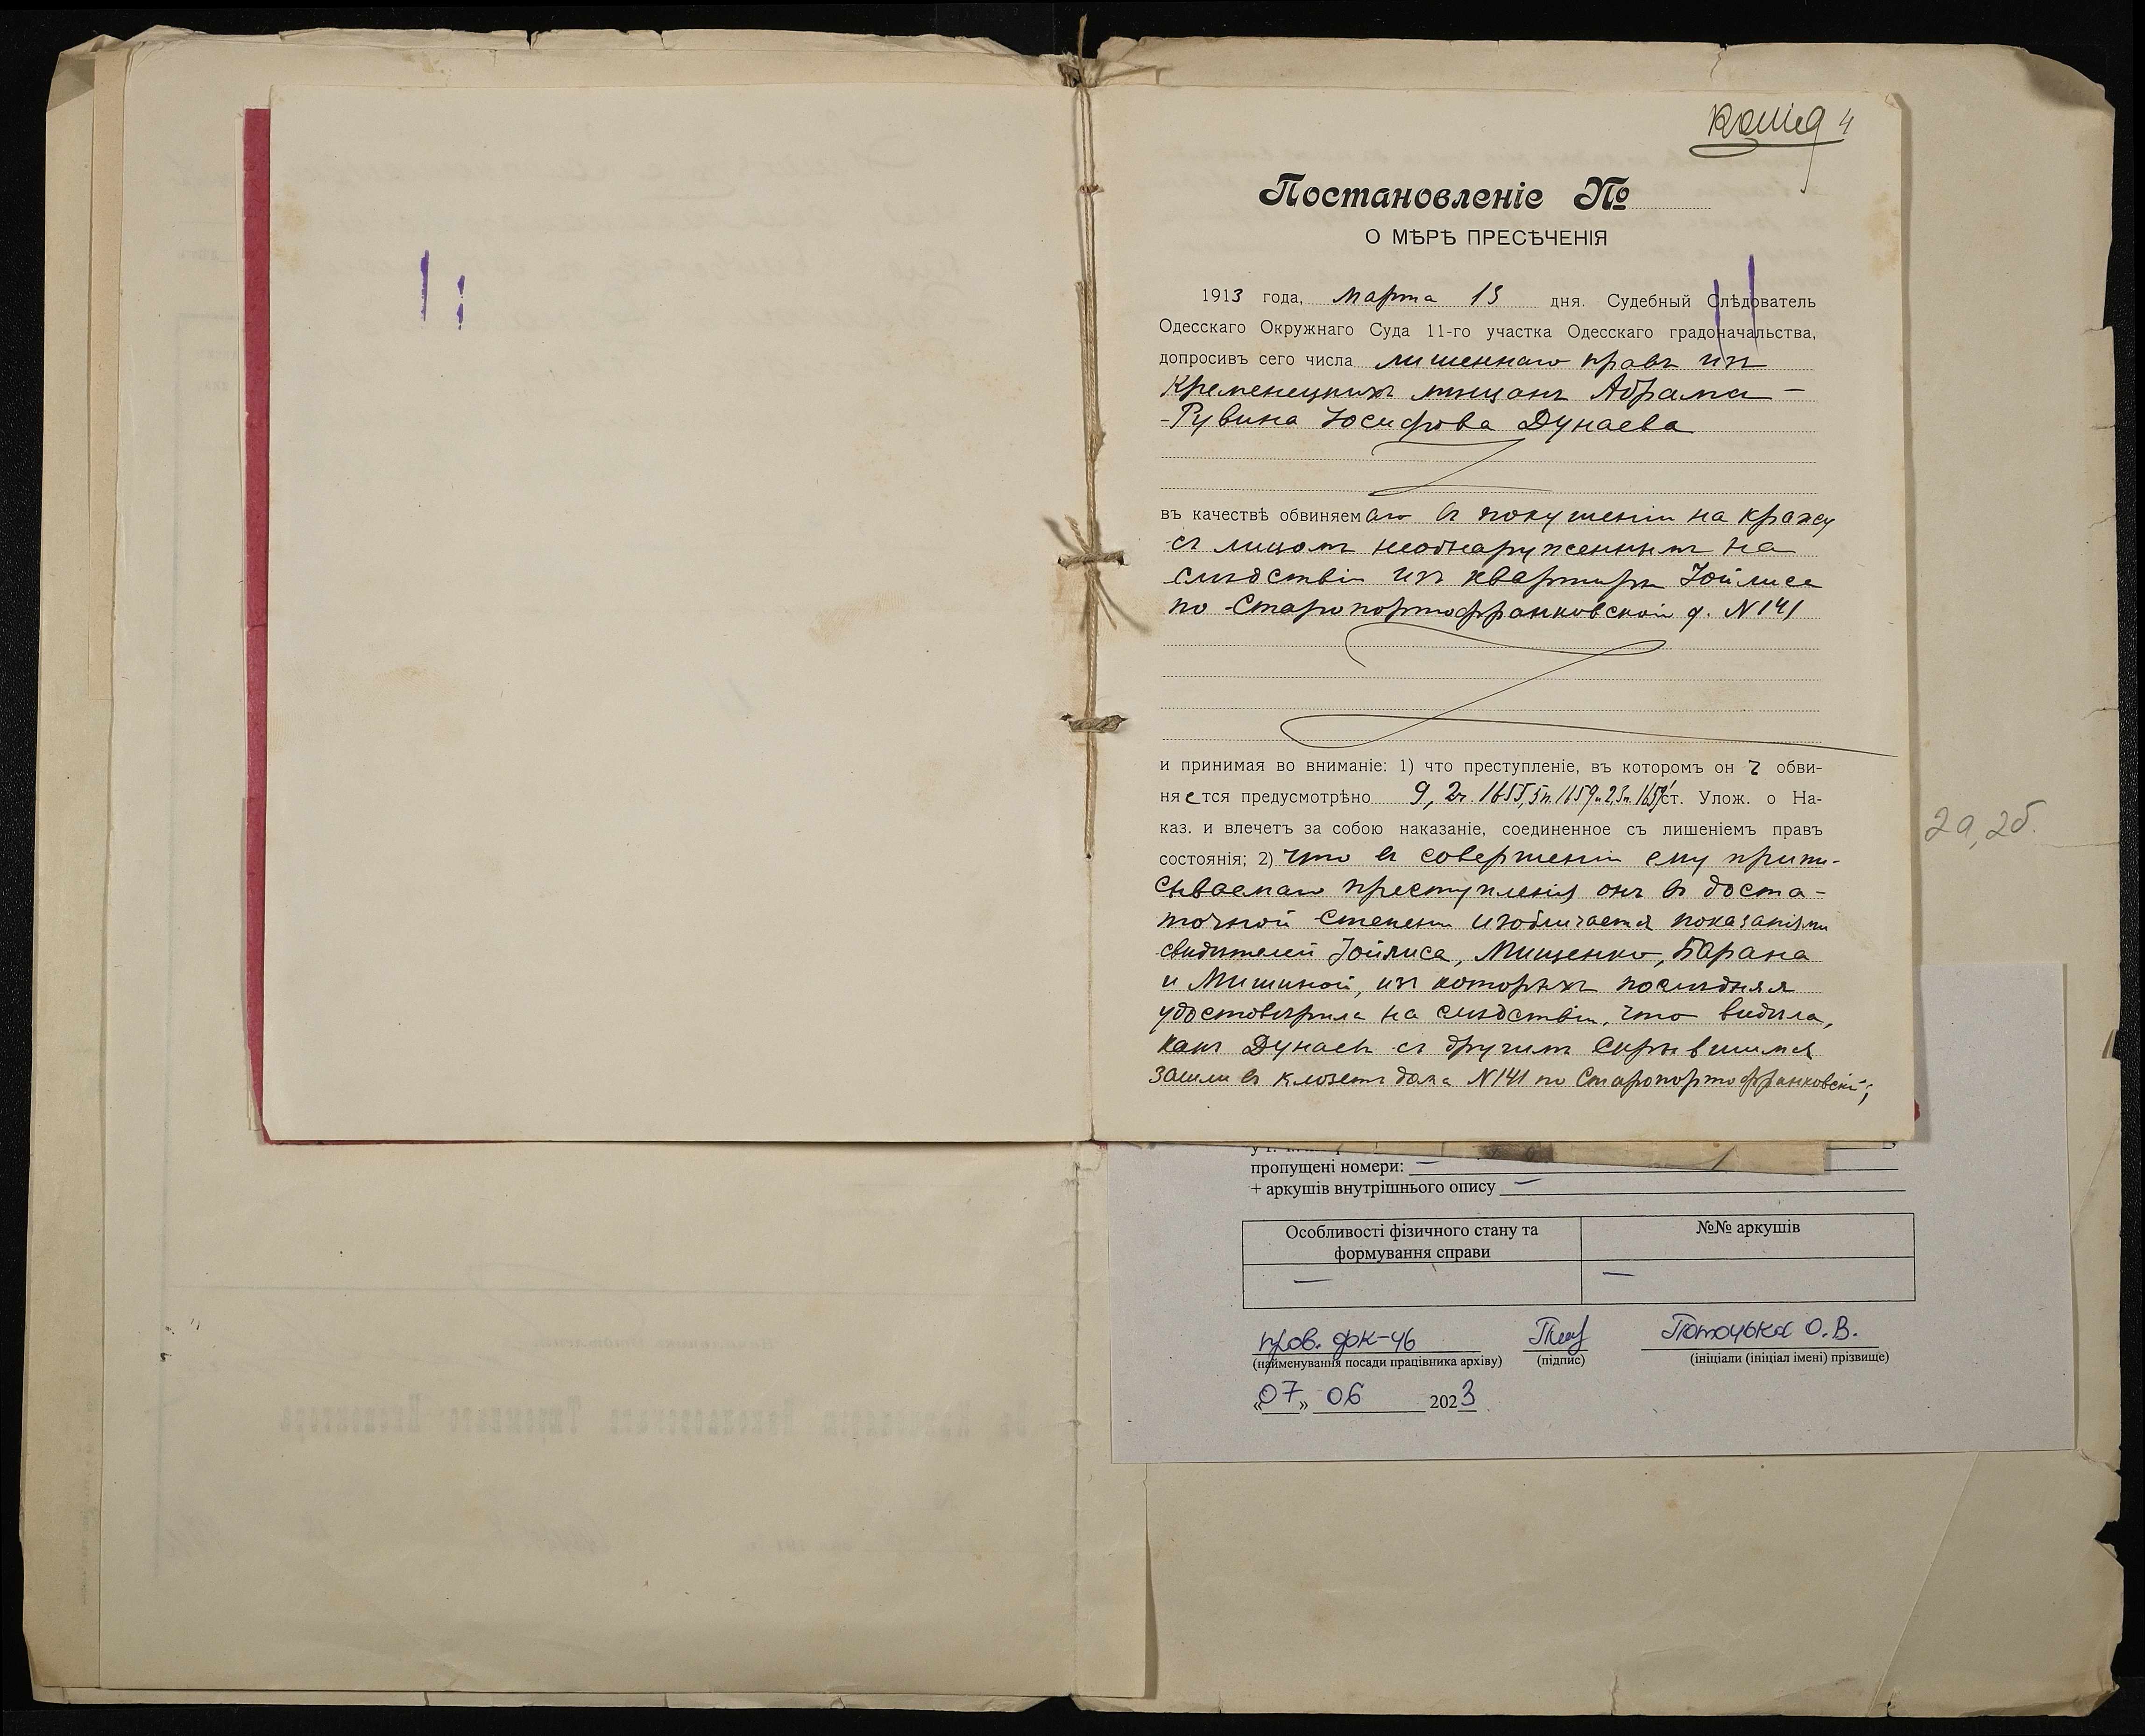 Копія 4
Постановленіе №
О МѢРѢ ПРЕСѢЧЕНІЯ
1913 года, марта 15 дня. Судебный Слѣдователь
Одесскаго Окружнаго Суда 11-го участка Одесскаго градоначальства,
допросивъ сего числа лишеннаго правъ изъ
Кременецкихъ мѣщанъ Абрама-
-Рувина Іосифова Дунаева
въ качествѣ обвиняемаго въ покушеніи на кражу
съ лицомъ необнаруженнымъ на
слѣдствіи изъ квартиры Іойлиса
по Старопортофранковской д. N 141
и принимая во вниманіе: 1) что преступленіе, въ которомъ онъ обви-
няется предусмотрѣно 9, 2ч. 1655, 5п. 1659 и 2, 3п. 1659¹ ст. Улож. о На-
каз. и влечетъ за собою наказаніе, соединенное съ лишеніемъ правъ
состоянія; 2) что въ совершеніи ему припи-
сываемаго преступленія онъ въ доста-
точной степени изобличается показаніями
свидѣтелей Іойлиса, Мищенко, Барана
и Мишиной, изъ которыхъ послѣдняя
удостовѣрила на слѣдствіи, что видѣла,
какъ Дунаевъ съ другимъ скрывшимся
зашли въ клозетъ дома N 141 по Старопортофранковской;
2а, 2б.
пропущені номери: —
+ аркушів внутрішнього опису —
Особливості фізичного стану та
формування справи
№№ аркушів
— —
пров. фк-чб
(найменування посади працівника архіву) (підпис) (ініціали (ініціал імені) прізвище)
«07» 06 2023